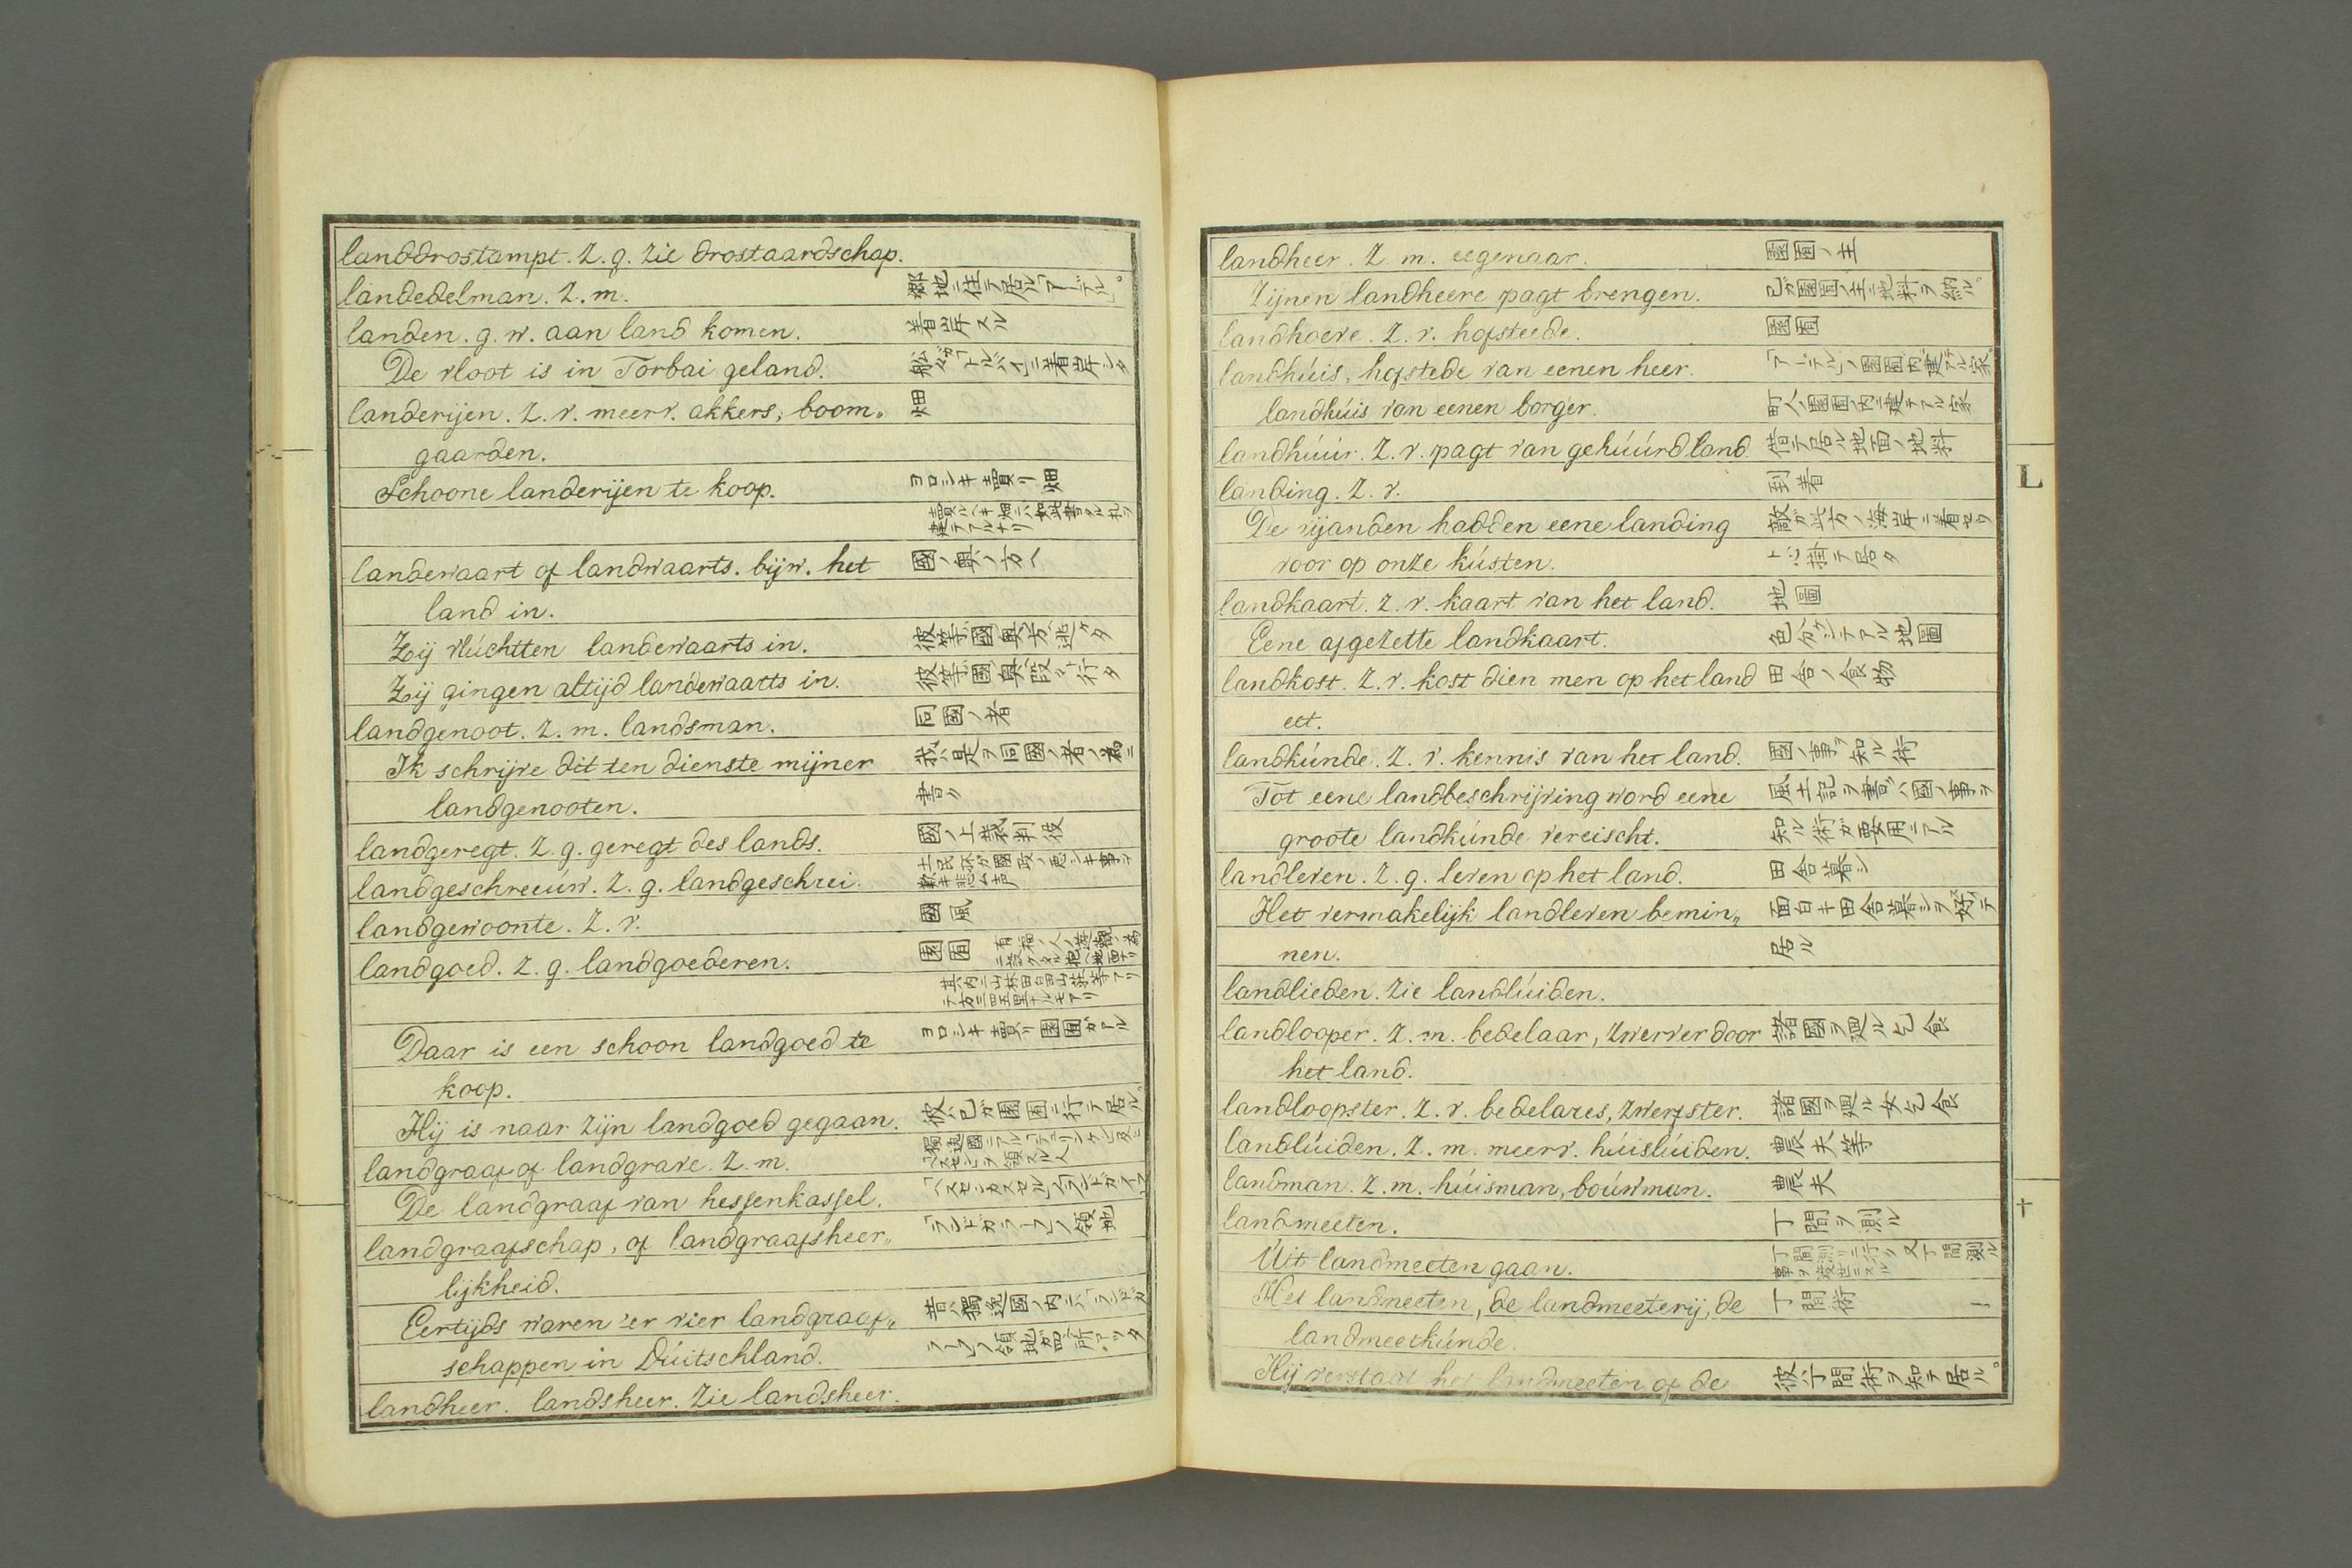 landdrostampt. Z. g. Zie drostaardschap.
landedelman. Z. m. 鄉地ニ住テ居ル「アーデル」。
landen. g. w. aan land komen. 着岸スル
De vloot is in Torbai geland. 船ガ「トルバイ」ニ着岸シタ
landerijen. Z. v. meerv. akkers, boom„ 畑
gaarden.
Schoone landerijen te koop. ヨロシキ賣リ畑
landewaart of landwaarts. bijw. het 國ノ奥ノ方ヘ
land in.
Zij vlúchtten landewaarts in.
Zij gingen altijd landewaarts in.
landgenoot. Z. m. landsman. 同國ノ者
Ik schrijve dit ten dienste mijner 我ハ是ヲ同國ノ者ノ為ニ
landgenooten. 書ク
landgeregt. Z. g. geregt des lands. 國ノ上裁判役
landgeschreeúw. Z. g. landgeschrei.
landgewoonte. Z. v. 國風
landgoed. Z. g. landgoederen.
Daar is een schoon landgoed te
koop.
Hij is naar zijn landgoed gegaan.
landgraaf of landgrave. Z. m.
De landgraaf van hessenkassel.
landgraafschap, of landgraafsheer„
lijkheid.
Eertijds waren 'er vier landgraaf„
schappen in Dúitschland.
landheer. landsheer. Zie landsheer.
landheer. Z. m. eegenaar.
Zijnen landheere pagt brengen.
landhoeve. Z. v. hofsteede.
landhúis, hofstede van eenen heer.
landhúis van eenen borger.
landhúúr. Z. v. pagt van gehúúrd land 借テ居ル地面ノ地料
landing. Z. v. 到着
De vijanden hadden eene landing 敵ガ此方ノ海岸ニ着セウ
voor op onze kústen. ト心掛テ居タ
landkaart. Z. v. kaart van het land. 地圖
Eene afgezette landkaart. 色分ケシテアル地圖
landkost. Z. v. kost dien men op het land 田舎ノ食物
eet.
landkúnde. Z. v. kennis van het land. 國ノ事ヲ知ル術
Tot eene landbeschrijving word eene 風土記ヲ書クハ國ノ事ヲ
groote landkúnde vereischt. 知ル術ガ要用テアル
landleven. Z. g. leven op het land. 田舎暮シ
Het vermakelijk landleven bemin„ 面白キ田舎暮シヲ好テ
nen. 居ル
landlieden. Zie landlúiden.
landlooper. Z. m. bedelaar, zwerver door 諸國ヲ廻ル乞食
het land.
landloopster. Z. v. bedelares, zwerfster. 諸國ヲ廻ル女乞食
L
landlúiden. Z. m. meerv. húislúiden. 農夫等
landman. Z. m. húisman, boúwman. 農夫
landmeeten. 丁間ヲ測ル
†
Úit landmeeten gaan.
Het landmeeten, de landmeeterij, de 丁間術
landmeetkúnde.
Hij verstaat het landmeeten of de 彼ハ丁間術ヲ知テ居ル。